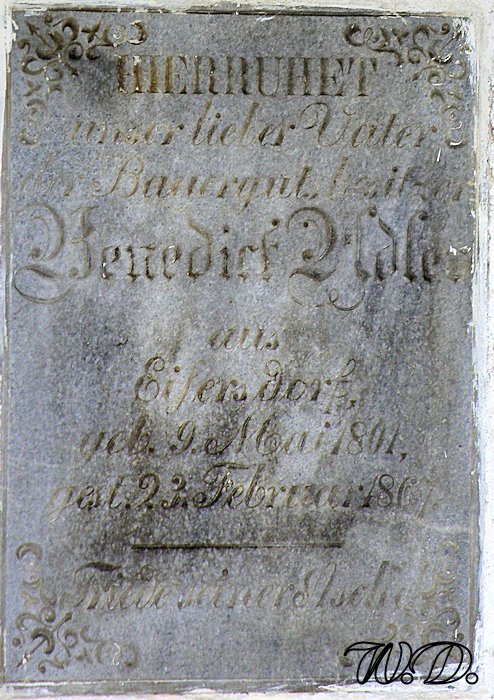 HIER RUHET
unser lieber Vater
der Bauergutsbesitzer
Benedict Adler
aus
Eisersdorf,
geb. 9. Mai 1801,
gest. 23. Februar 1867.
Friede seiner Asche
W.D.